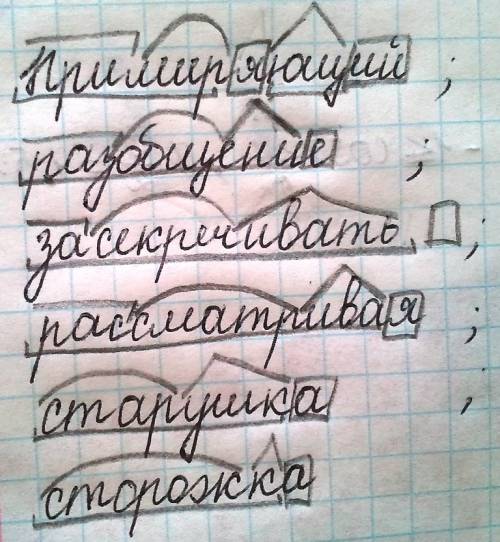 примиряющий ;
разобщение ;
засекречивать ;
рассматривая ;
старушка ;
сторожка